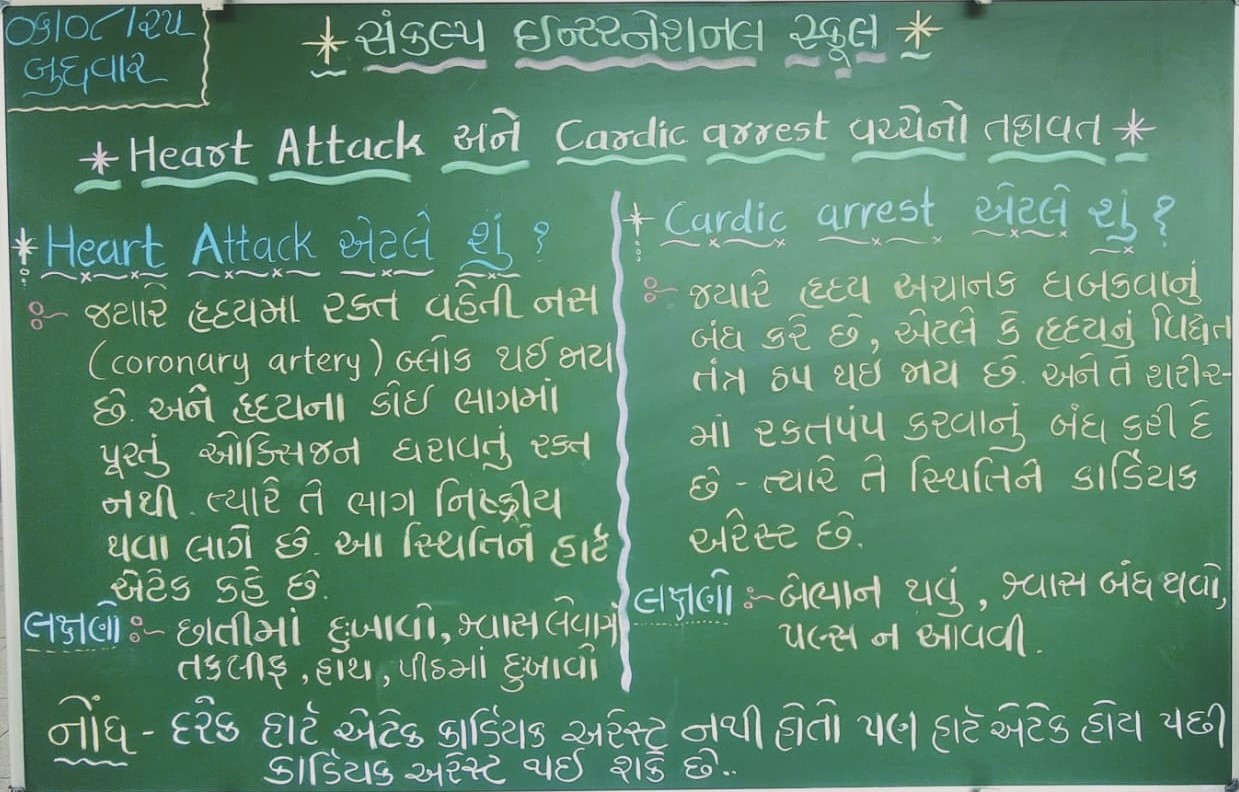 ૦૬/૦૮/૨૫
બુધ્ધવાર
* સંકલ્પ ઇન્ટરનેશનલ સ્કૂલ *
* Heart Attack અને Cardic arrest વચ્ચેનો તફાવત *
* Heart Attack એટલે શું ?
:- જયારે હૃદયમા રક્ત વહેતી નસ
(coronary artery) બ્લોક થઈ જાય
છે. અને હૃદયના કોઈ ભાગમાં
પૂરતું ઓક્સિજન ધરાવતું રક્ત
નથી. ત્યારે તે ભાગ નિષ્ક્રીય
થવા લાગે છે. આ સ્થિતિને હાર્ટ
એટેક કહે છે.
લક્ષણો :- છાતીમાં દુખાવો, શ્વાસ લેવામાં
તકલીફ, હાથ, પીઠમાં દુખાવો
* Cardic arrest એટલે શું ?
:- જયારે હૃદય અચાનક ધબકવાનું
બંધ કરે છે, એટલે કે હૃદયનું વિદ્યુત
તંત્ર ઠપ થઇ જાય છે. અને તે શરીર-
માં રકતપંપ કરવાનું બંધ કરી દે
છે - ત્યારે તે સ્થિતિને કાર્ડિયક
અરેસ્ટ છે.
લક્ષણો :- બેભાન થવું, શ્વાસ બંધ થવો,
પલ્સ ન આવવી.
નોંધ - દરેક હાર્ટ એટેક કાર્ડિયક અરેસ્ટ નથી હોતો પણ હાર્ટ એટેક હોય પછી
કાર્ડિયક અરેસ્ટ થઈ શકે છે..